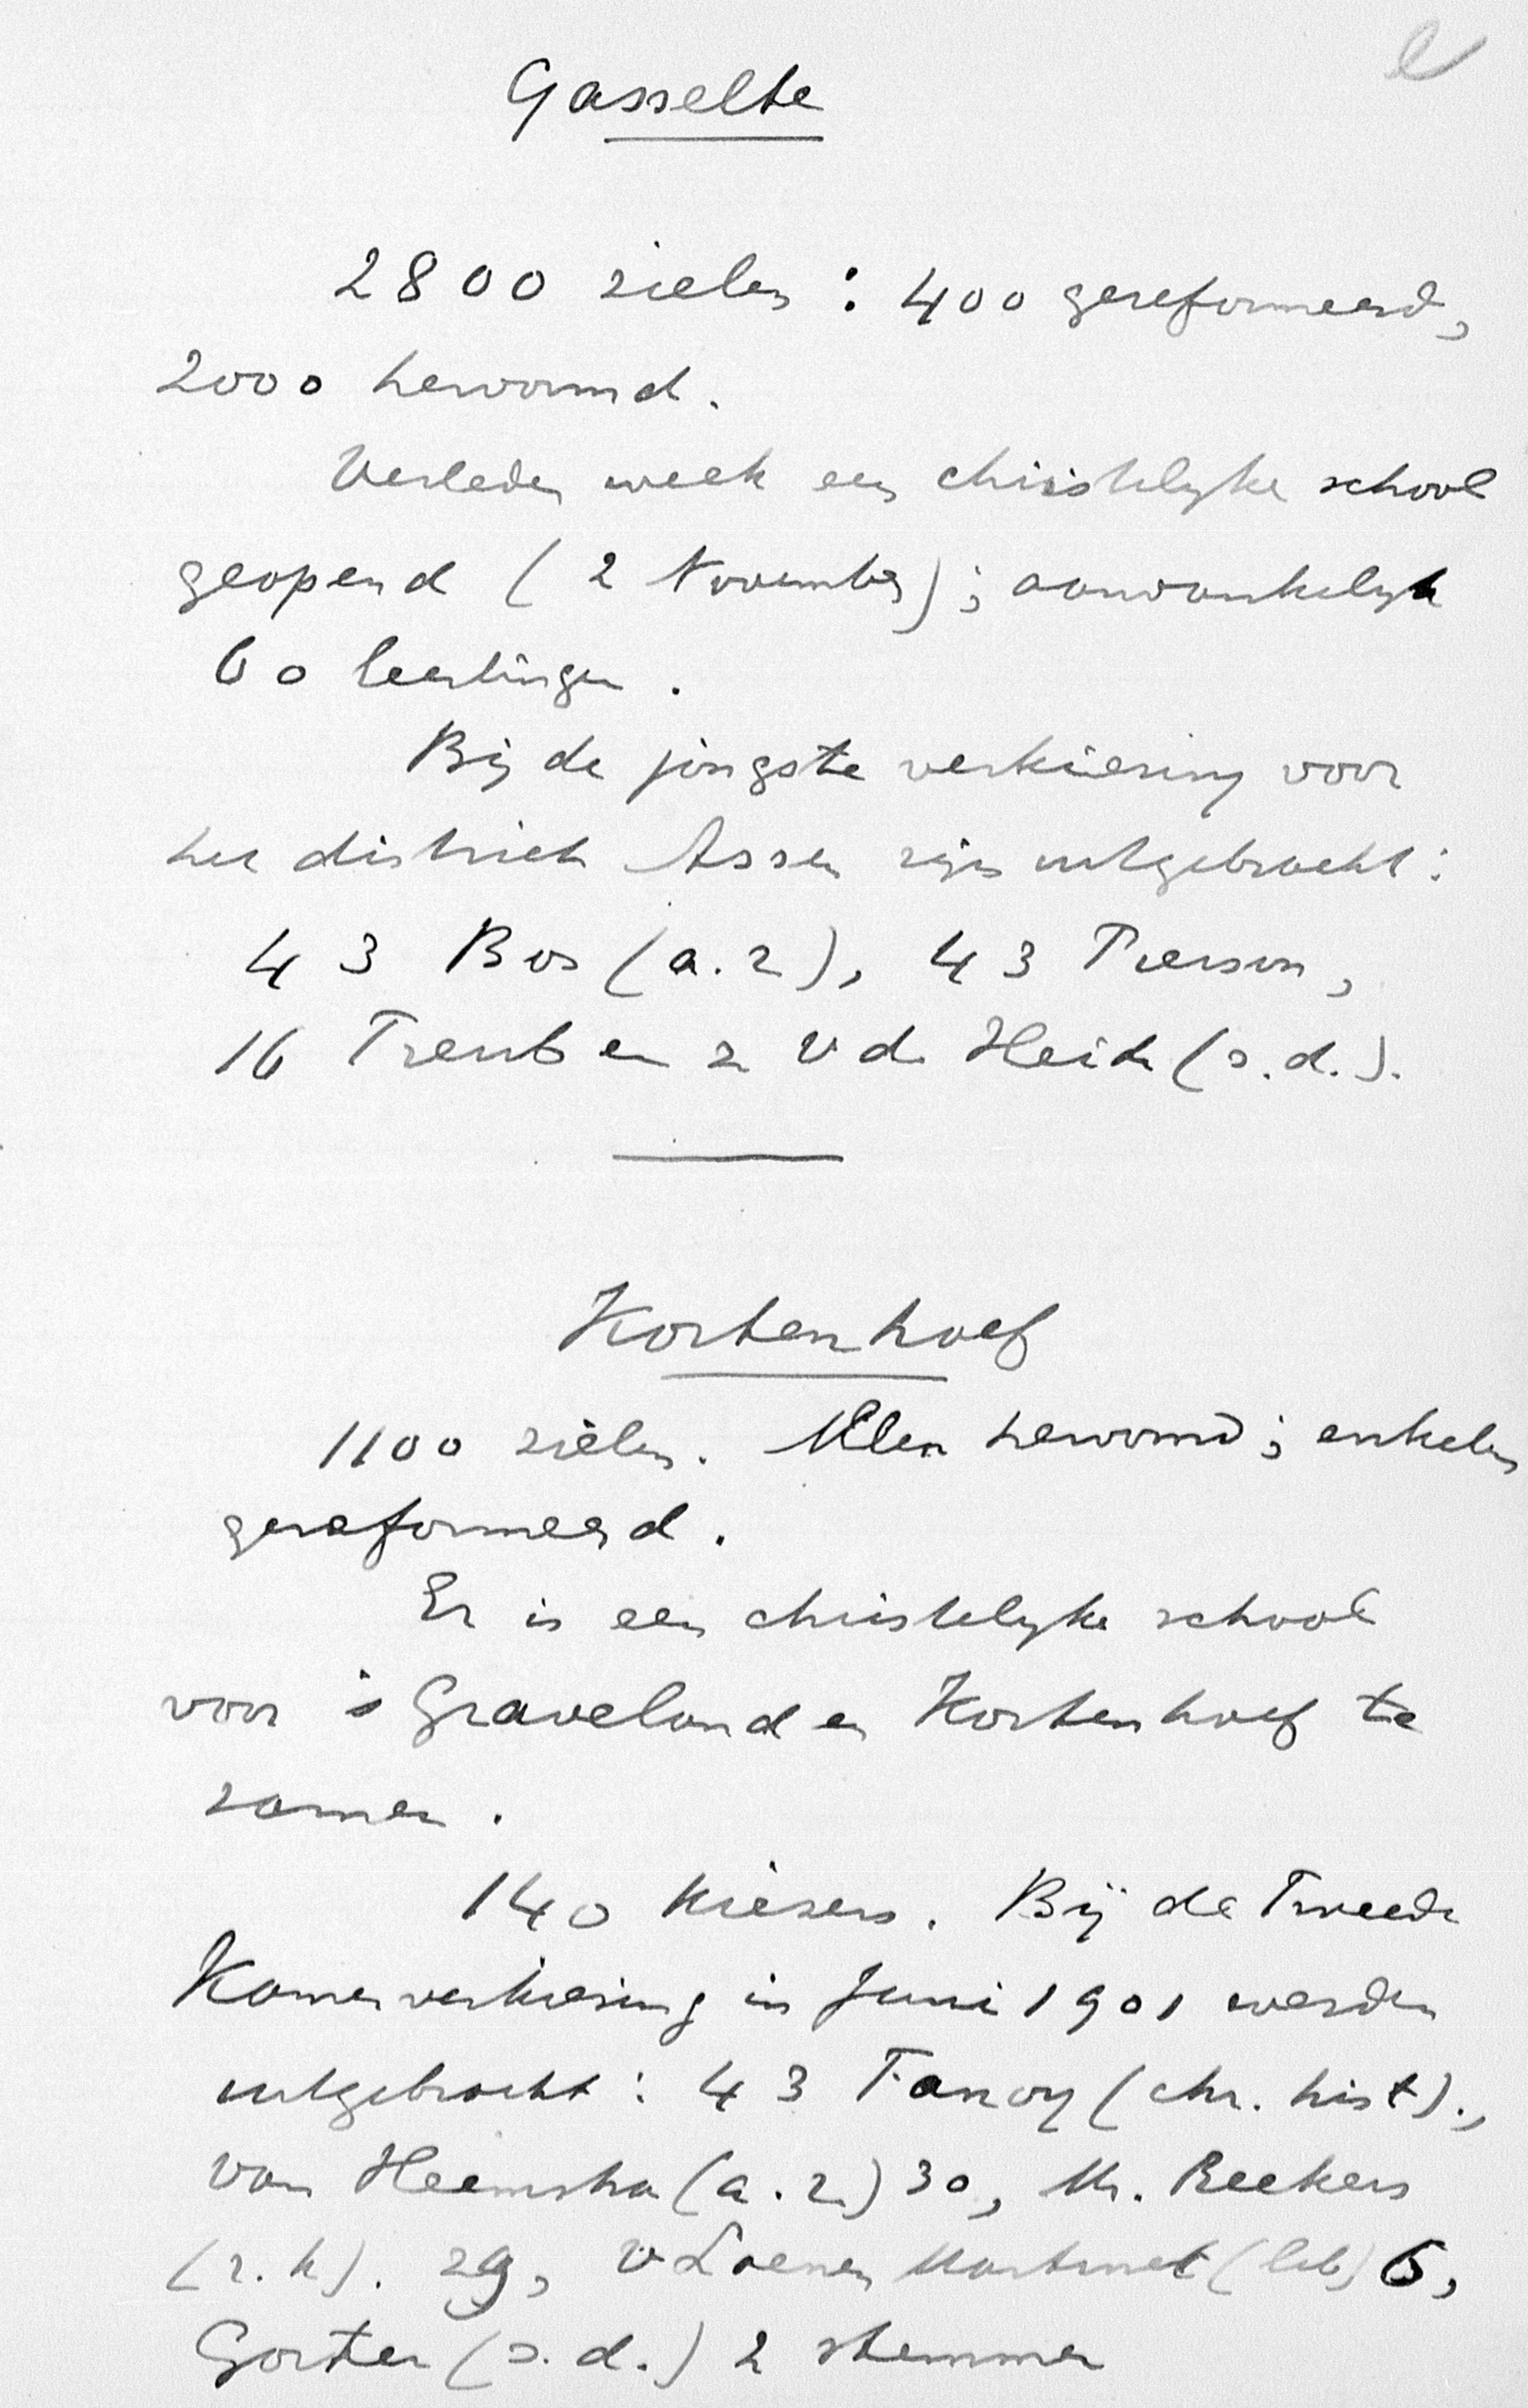 Gasselte
2800 zielen : 400 gereformeerd,
2000 hervormd.
Verleden week een christelijke school
geopend (2 November); aanvankelijk
60 leerlingen.
Bij de jongste verkiezing voor
het district Assen zijn uitgebracht:
43 Bos (a.r), 43 Pierson,
16 Treub en 2 vd Heide (s.d.).
Kortenhoef
1100 zielen. Allen hervormd; enkelen
gereformeerd.
Er is een christelijke school
voor 's Graveland en Kortenhoef te
zamen.
140 kiezers. Bij de Tweede
Kamerverkiezing in Juni 1901 werden
uitgebracht : 43 Fanoy (chr. hist).,
van Heemstra (a.r.) 30, Mr. Reekers
(r.k). 29, v Loenen Martinet (lib) 6,
Gorter (s.d.) 2 stemmen